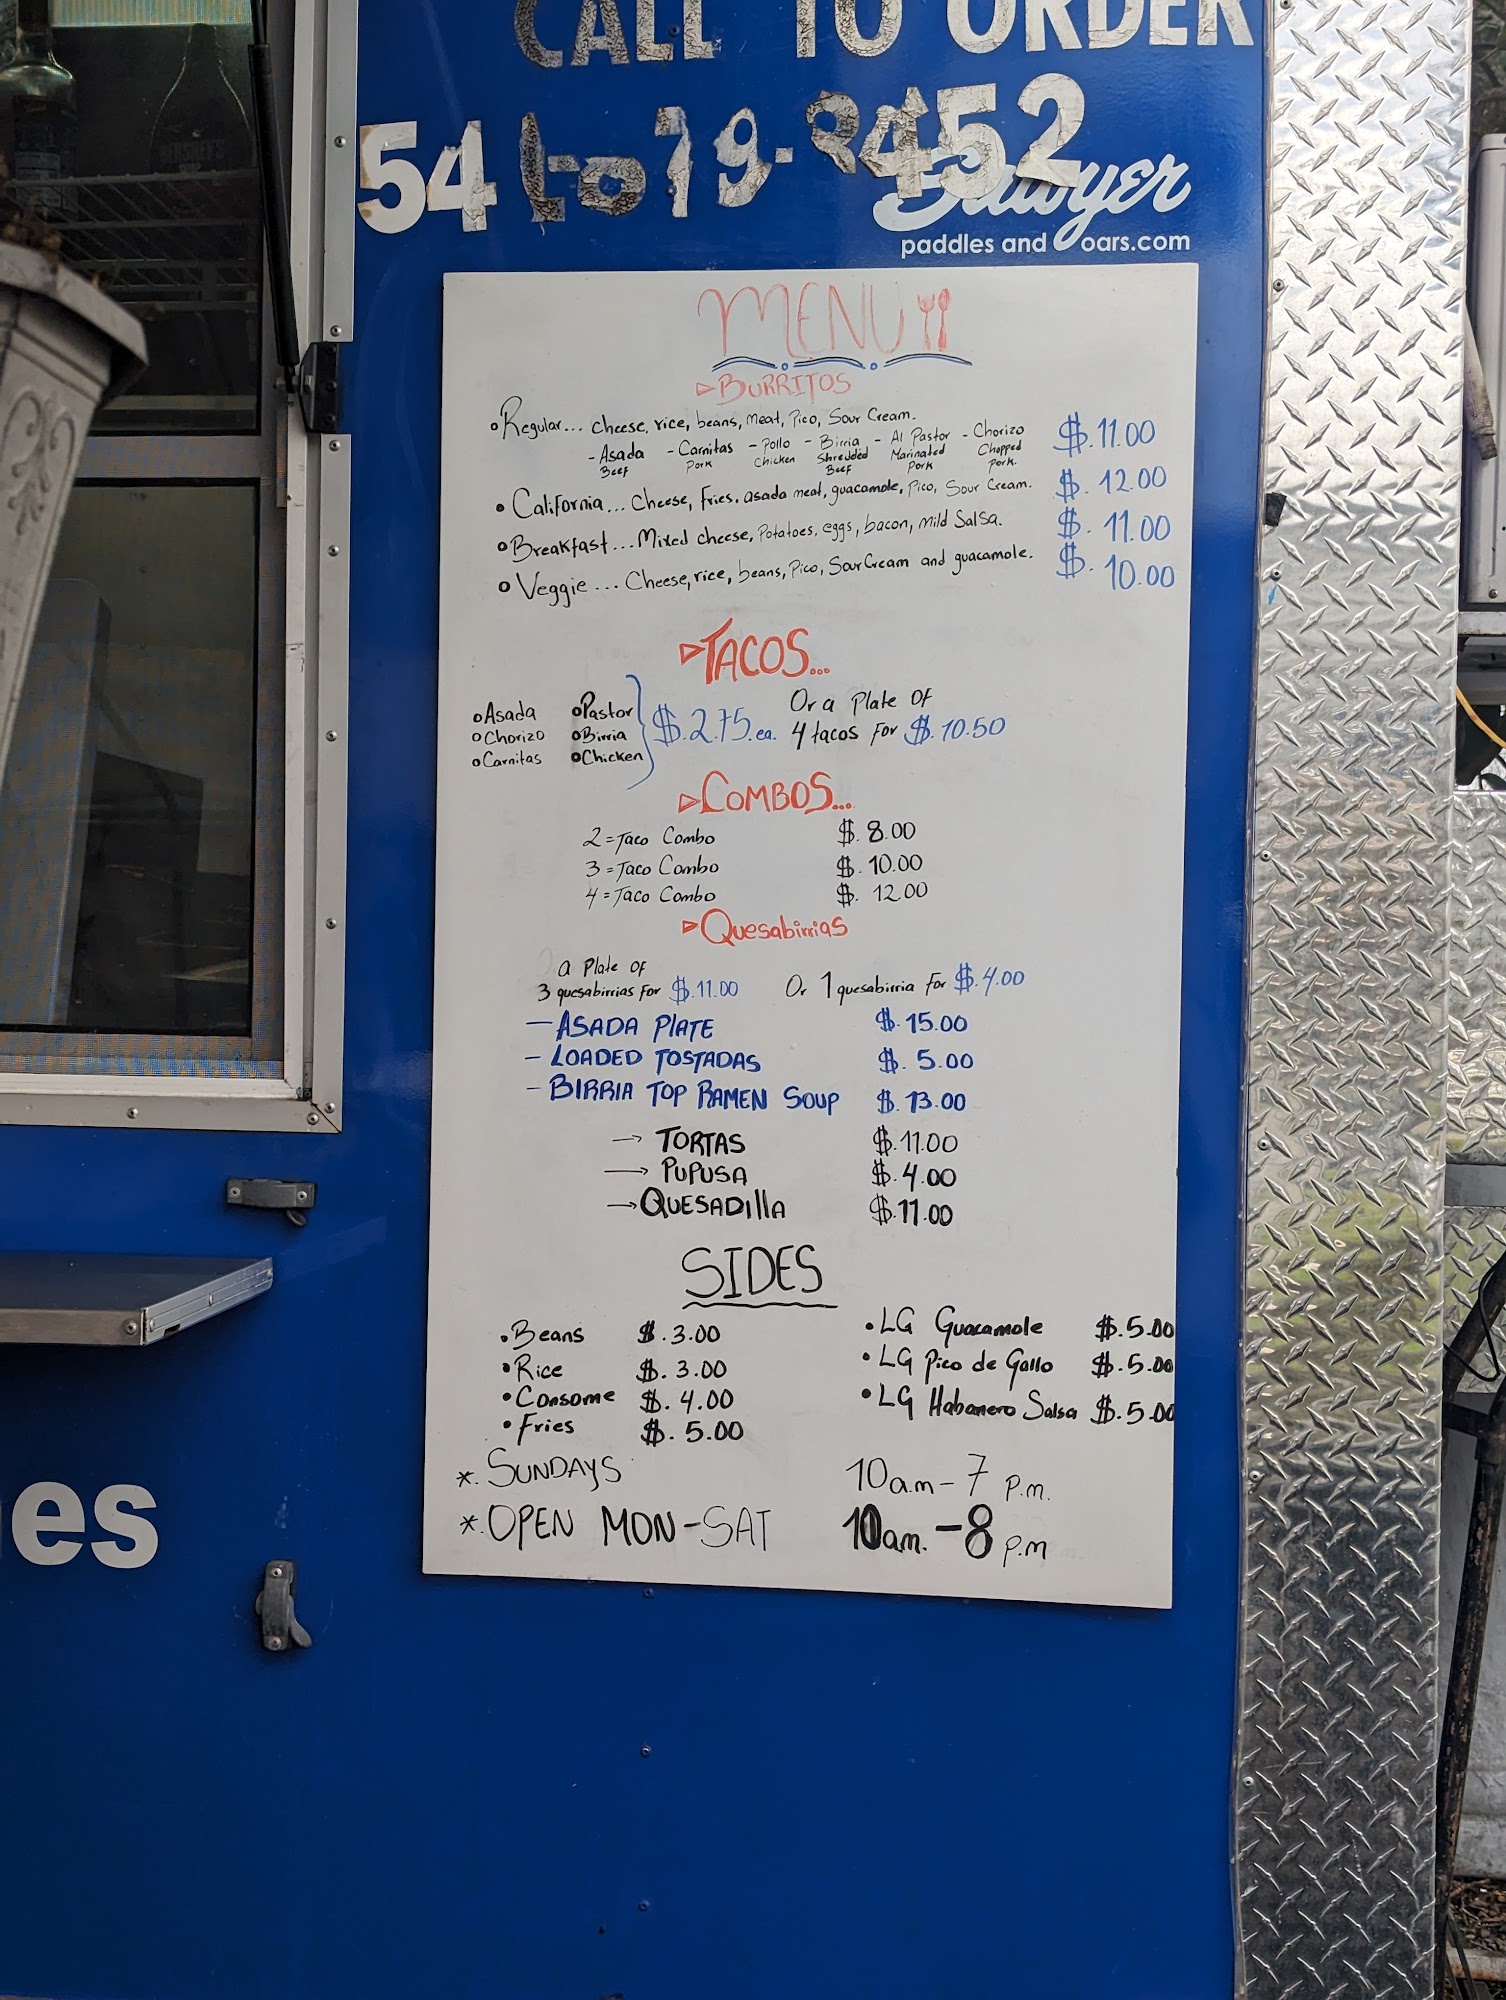 CALL TO ORDER
Sawyer
paddles and oars.com
HERSHEY'S
MENU
BURRITOS
Regular... cheese, rice, beans, meat, Pico, Sour Cream.
- Asada - Carnitas - Pollo - Birria - Al Pastor - Chorizo $.11.00
Beef Pork Chicken Shredded Beef Marinated Pork Chopped Pork.
California... Cheese, Fries, asada meat, guacamole, Pico, Sour Cream. $. 12.00
Breakfast... Mixed cheese, Potatoes, eggs, bacon, mild Salsa. $. 11.00
Veggie ... Cheese, rice, beans, Pico, Sour Cream and guacamole. $. 10.00
TACOS...
Asada Pastor
Chorizo Birria
Carnitas Chicken
$.2.75.ea.
Or a Plate OF
4 tacos For $.10.50
COMBOS...
2=Taco Combo $. 8.00
3=Taco Combo $. 10.00
4=Taco Combo $. 12.00
Quesabirrias
a Plate of
3 quesabirrias For $.11.00 Or 1 quesabirria For $.4.00
- ASADA PLATE $. 15.00
- LOADED TOSTADAS $. 5.00
- BIRRIA TOP RAMEN SOUP $. 13.00
→ TORTAS $.11.00
→ PUPUSA $. 4.00
→ QUESADIllA $.11.00
SIDES
• Beans $. 3.00
• Rice $. 3.00
• Consome $. 4.00
• Fries $. 5.00
• LG Guacamole $.5.00
• LG Pico de Gallo $.5.00
• LG Habanero Salsa $.5.00
*. SUNDAYS 10am-7 P.m.
*. OPEN MON-SAT 10am.-8 p.m
es